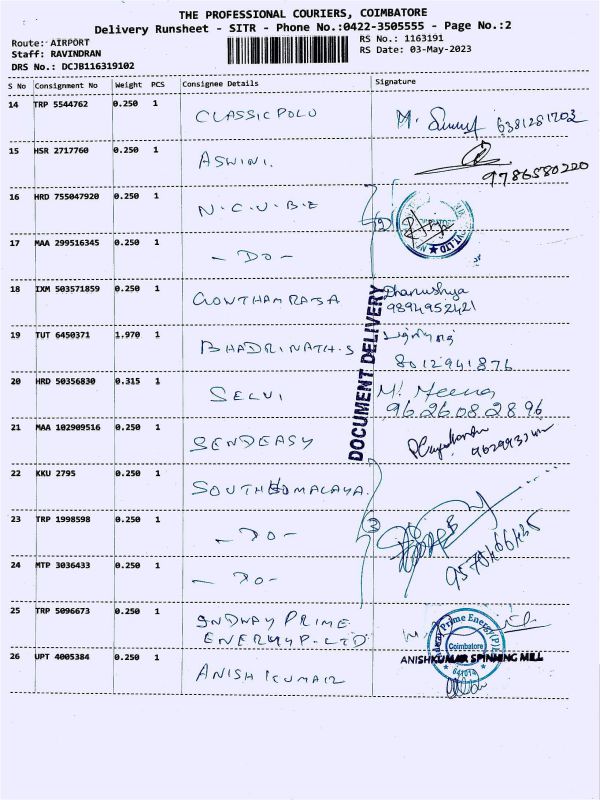 THE PROFESSIONAL COURIERS, COIMBATORE
Delivery Runsheet - SITR - Phone No.:0422-3505555 - Page No.:2
Route: AIRPORT
Staff: RAVINDRAN
DRS No.: DCJB116319102
RS No.: 1163191
RS Date: 03-May-2023
S No Consignment No Weight PCS Consignee Details Signature
14 TRP 5544762 0.250 1 CLASSIC POLO 6381281703
15 HSR 2717760 0.250 1 ASWINI. 9786580220
16 HRD 755047920 0.250 1 N.C.U.B.E
17 MAA 299516345 0.250 1 - DO -
18 IXM 503571859 0.250 1 GOWTHAM RAJA Dhanushya
9894952421
19 TUT 6450371 1.970 1 BHADRINATH.S
8012941876
20 HRD 50356830 0.315 1 SELVI M. Meena
9626082896
21 MAA 102909516 0.250 1 SENDEASY
22 KKU 2795 0.250 1 SOUTH HIMALAYA.
23 TRP 1998598 0.250 1 - DO -
24 MTP 3036433 0.250 1 - DO -
25 TRP 5096673 0.250 1 INDWAY PRIME
ENERGY P. LTD
26 UPT 4005384 0.250 1 ANISH KUMAR
DOCUMENT DELIVERY
Prime Energy (P)
Coimbatore
ANISHKUMAR SPINNING MILL